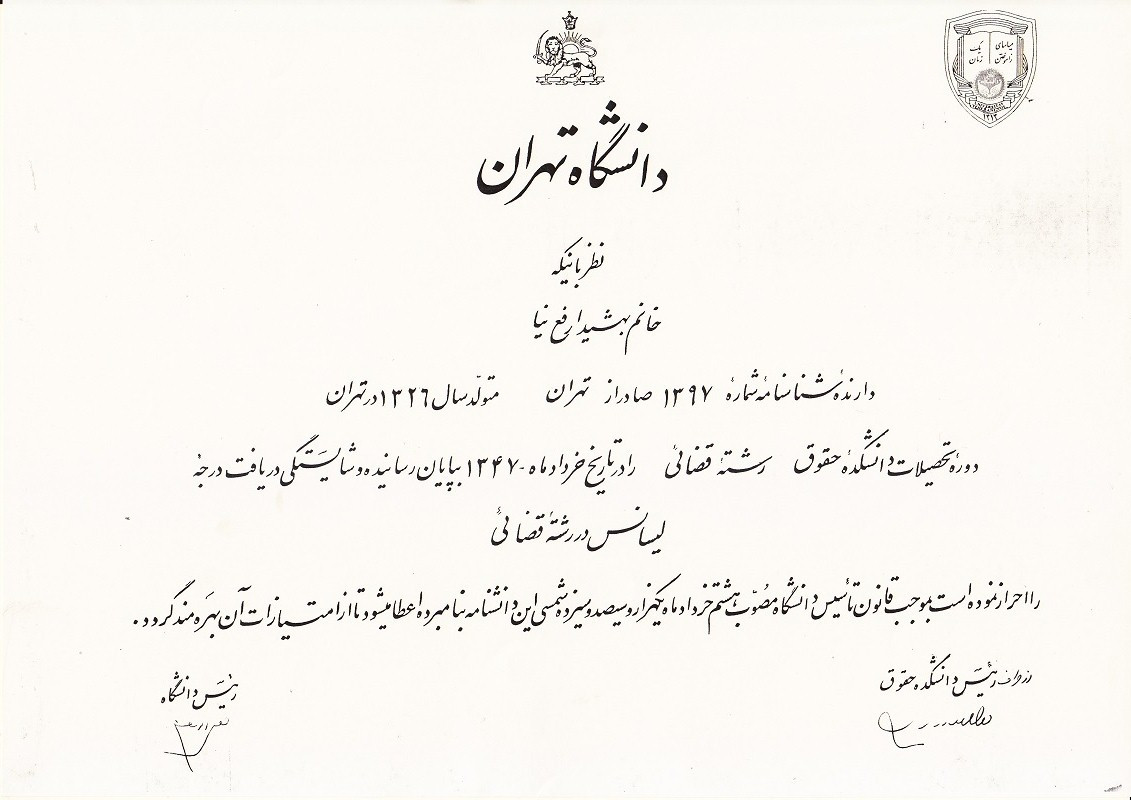 بیاسای زآموختن یک زمان
۱۳۱۳
دانشگاه تهران
نظر باینکه
خانم بهشید ارفع نیا
دارندهٔ شناسنامهٔ شمارهٔ ۱۳۹۷ صادر از تهران متولّد سال ۱۳۲۶ در تهران
دورهٔ تحصیلات دانشکدهٔ حقوق رشتهٔ قضائی را در تاریخ خرداد ماه ۱۳۴۷ بپایان رسانیده و شایستگی دریافت درجهٔ
لیسانس در رشتهٔ قضائی
را احراز نموده است بموجب قانون تأسیس دانشگاه مصوّب هشتم خرداد ماه یکهزار و سیصد و سیزده شمسی این دانشنامه بنامبرده اعطا میشود تا از امتیازات آن بهره‌مند گردد.
از طرف رئیس دانشکده حقوق
رئیس دانشگاه